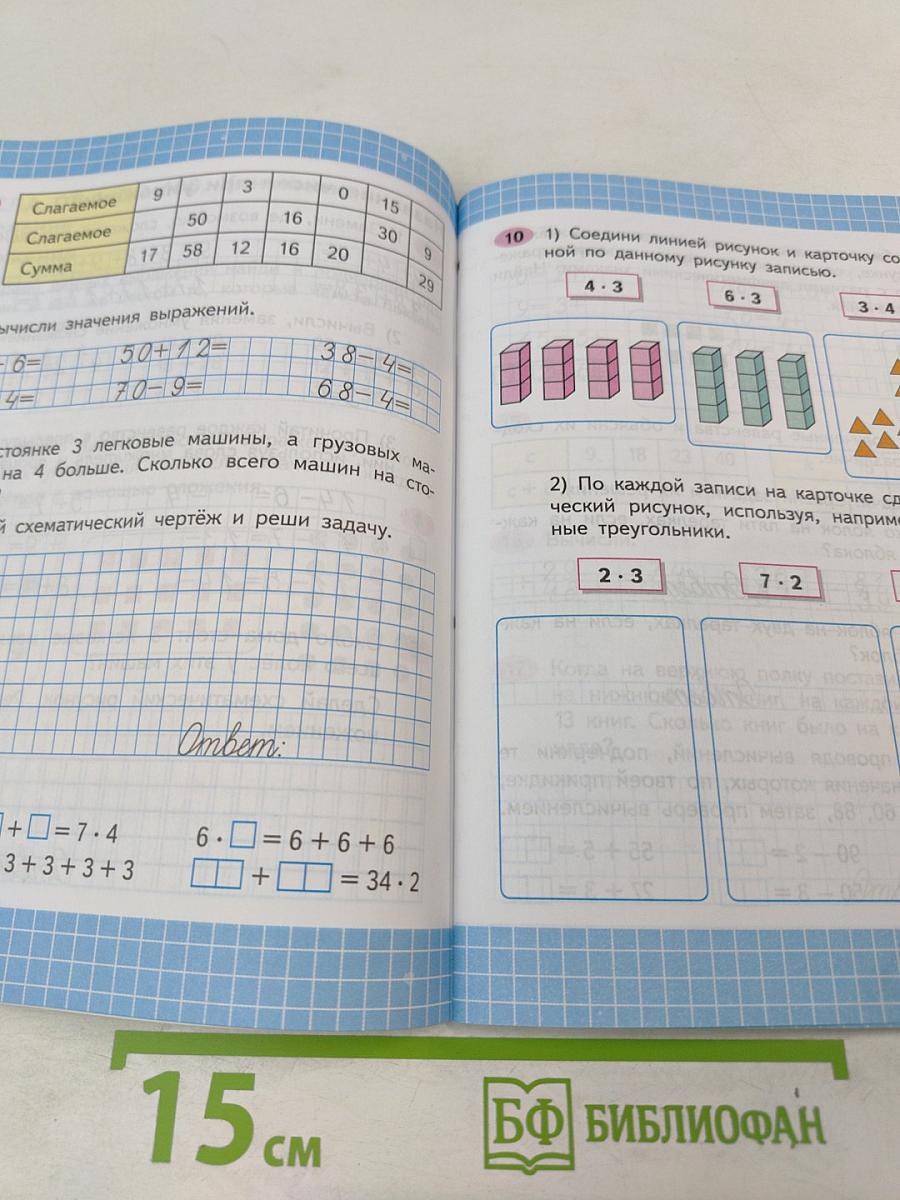 Слагаемое 9 3 0 15
Слагаемое 50 16 30 9
Сумма 17 58 12 16 20 29
ычисли значения выражений.
6= 50+12= 38-4=
4= 70-9= 68-4=
стоянке 3 легковые машины, а грузовых ма-
на 4 больше. Сколько всего машин на сто-
й схематический чертёж и реши задачу.
Ответ:
+ = 7·4 6· = 6+6+6
3+3+3+3 + = 34·2
10 1) Соедини линией рисунок и карточку со
ной по данному рисунку записью.
4·3 6·3 3·4
2) По каждой записи на карточке сд
ческий рисунок, используя, наприме
ные треугольники.
2·3 7·2
15 см
БФ БИБЛИОФАН